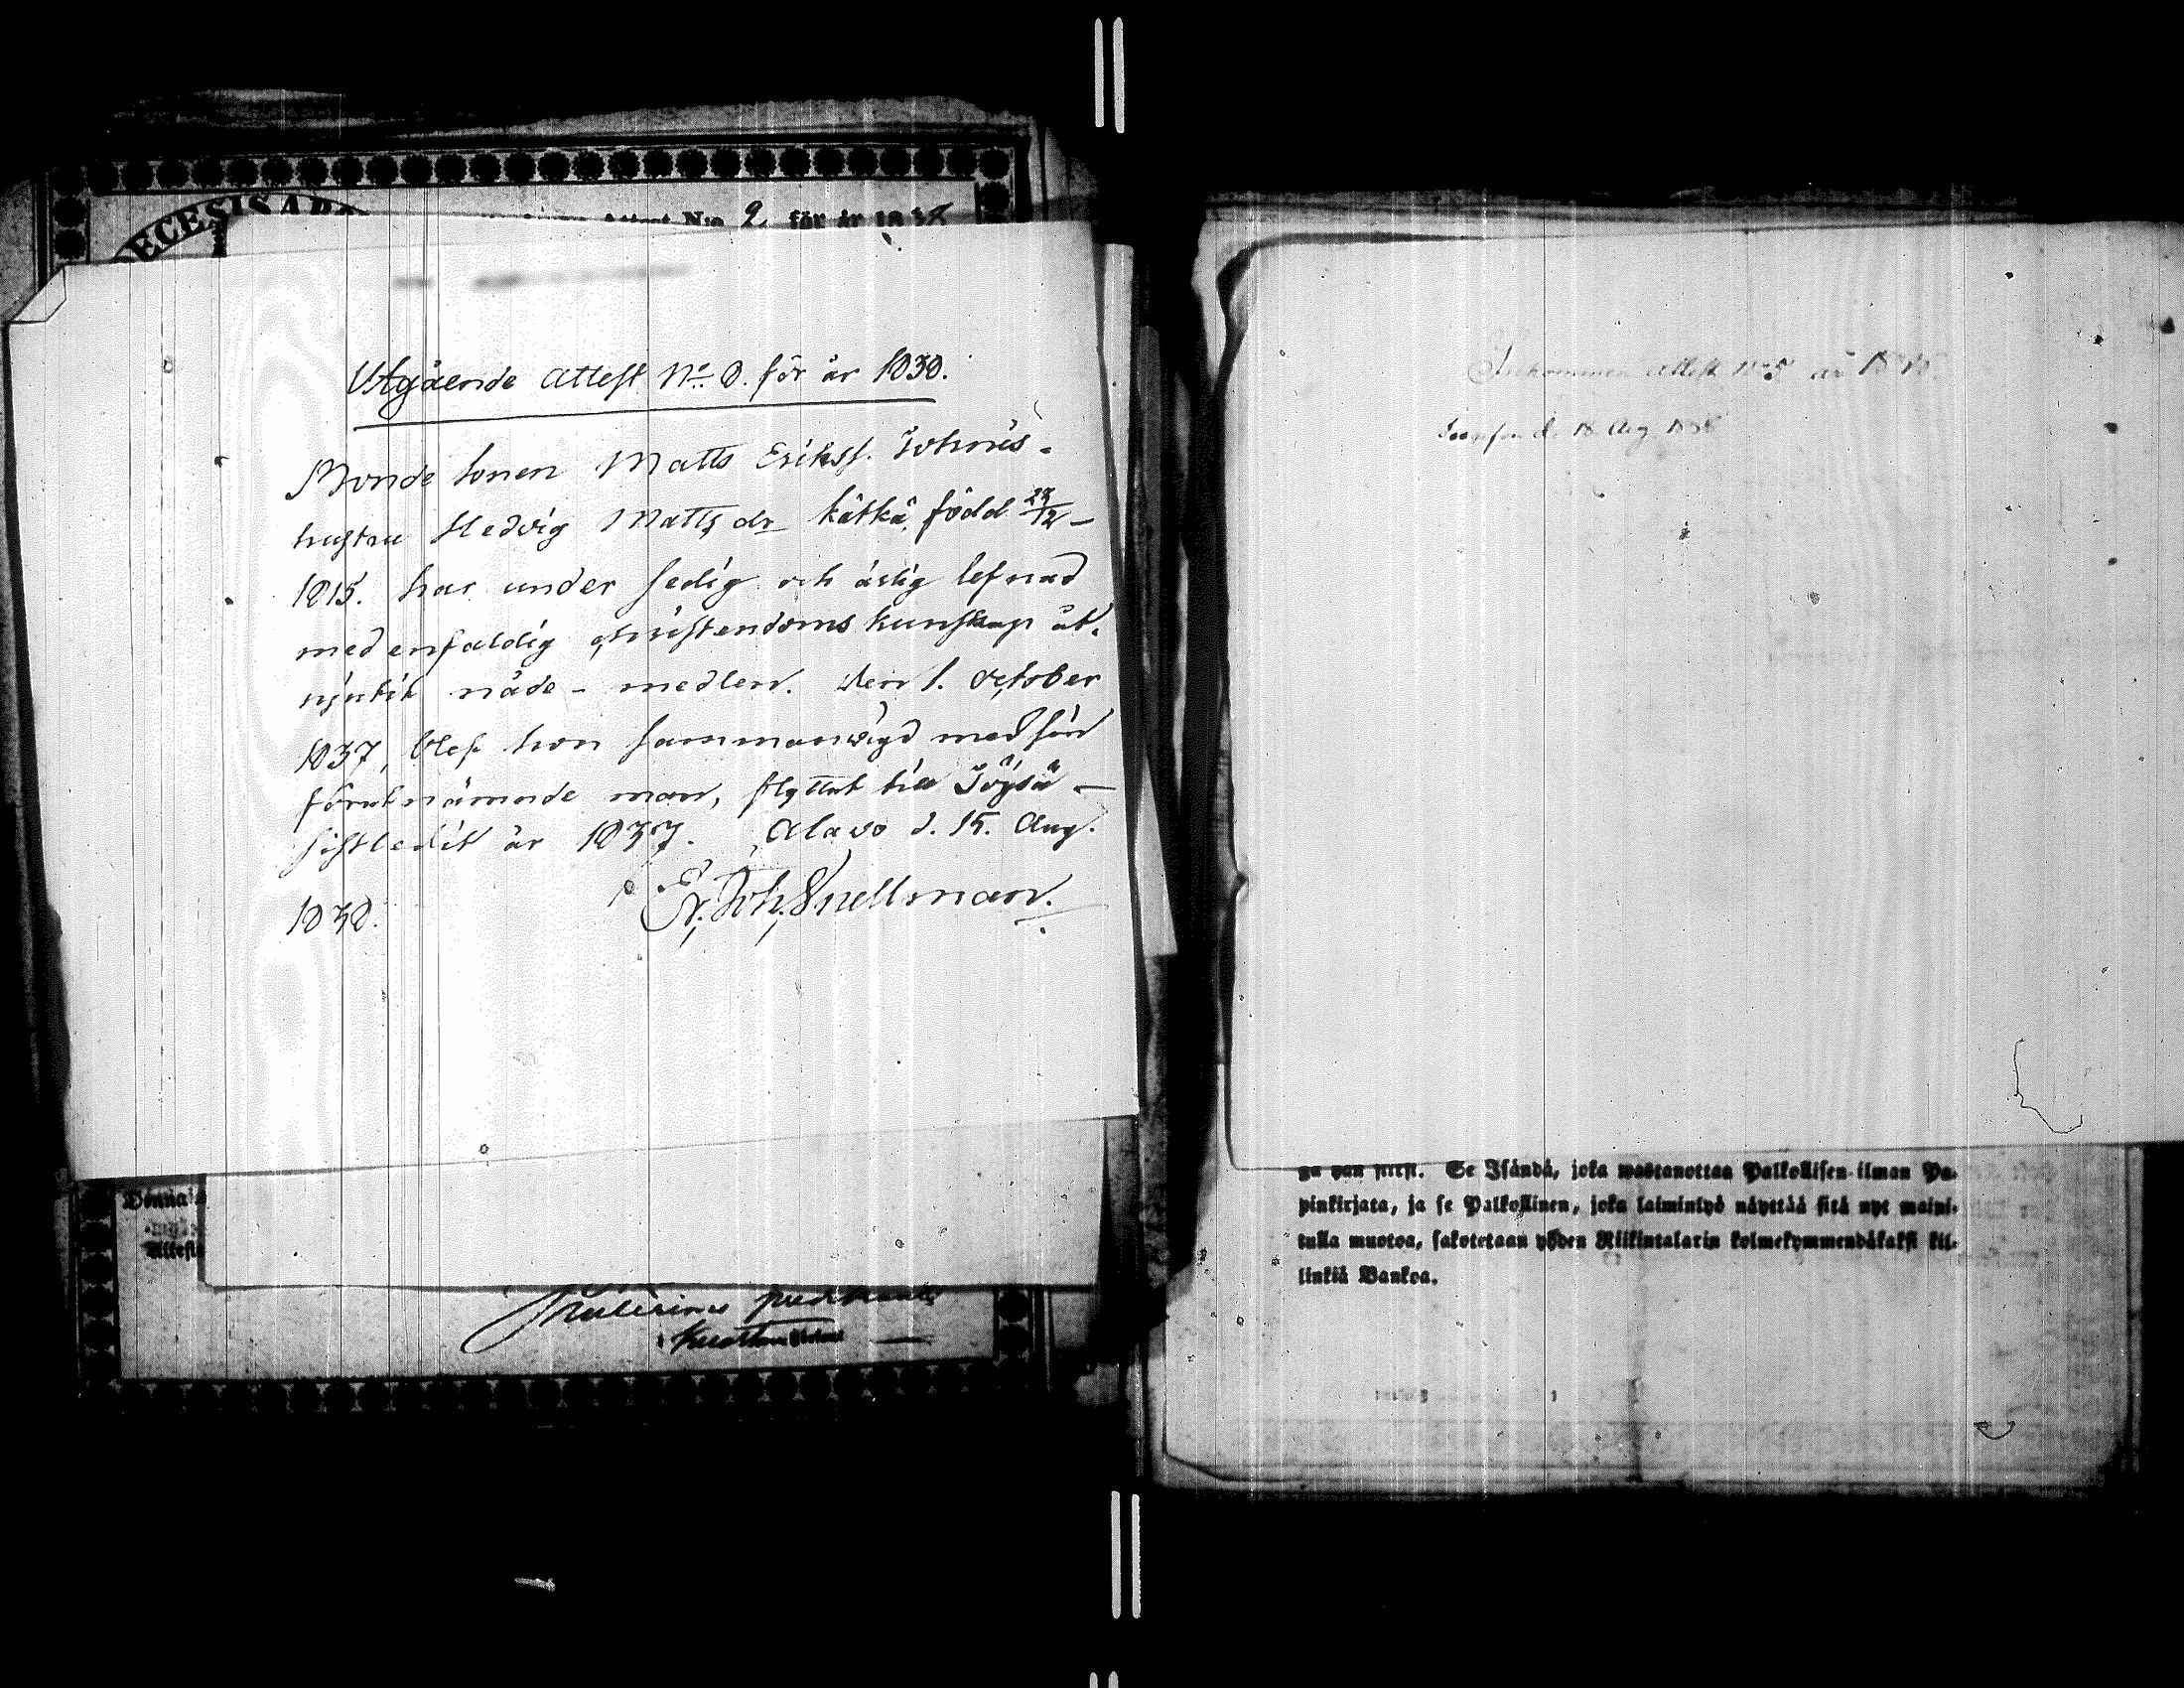 DECESIS
Attest N:o 2 för år 1838
Utgående attest No 8. för år 1838.
Bonde sonen Matts Erikss.
hustru Hedvig Mattsdr Kätkä, född 28/12
1815. har under sedig och ärlig lefnad
med enfaldig christendoms kunskap åt-
njutit nåde-medlen. den 1. October
1837, blef hon sammanvigd med sin
förutnämnde man, flyttat till Töysä
sistledit år 1837. Alavo d. 15. Aug.
1838. Er. Joh. Snellman.
Donna
Attest
Inkommen attest No 5 år
d. 18 Aug 1838
Se Isändä, joka wastanottaa Palkollisen ilman Pa-
pinkirjata, ja se Palkollinen, joka laiminlyö näyttää sitä nyt maini-
tulla muotoa, sakotetaan yhden Riikintalarin kolmekymmendäkaksi kil-
linkiä Bankoa.